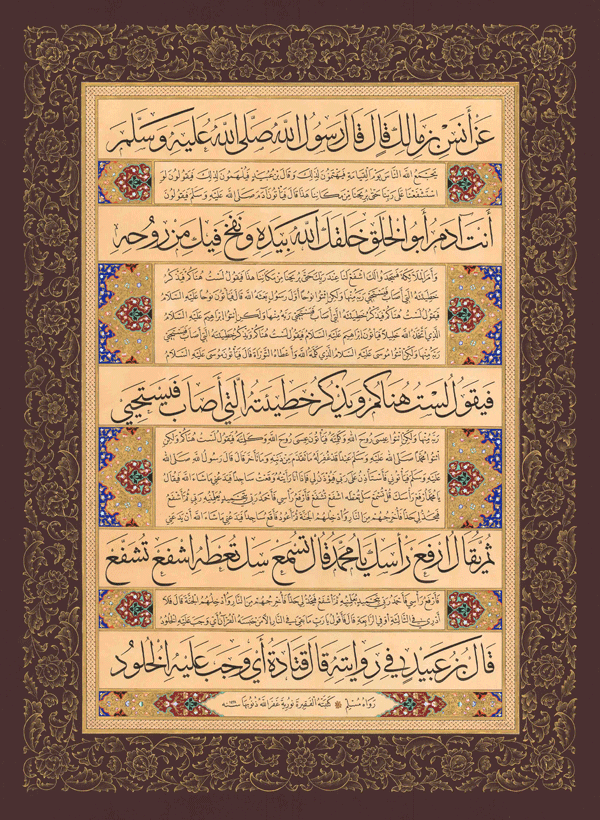 عن أنس بن مالك قال قال رسول الله صلى الله عليه وسلم
يجتمع الله الناس يوم القيامة فيهتمون لذلك وقال بن عبيد فيلهمون لذلك فيقولون لو
استشفعنا على ربنا حتى يريحنا من مكاننا هذا قال فيأتون آدم صلى الله عليه وسلم فيقولون
أنت آدم أبو الخلق خلقك الله بيده ونفخ فيك من روحه
وأمر الملائكة فسجدوا لك اشفع لنا عند ربك حتى يريحنا من مكاننا هذا فيقول لست هناكم فيذكر
خطيئته التي أصاب فيستحيي ربه منها ولكن ائتوا نوحا أول رسول بعثه الله قال فيأتون نوحا عليه السلام
فيقول لست هناكم فيذكر خطيئته التي أصاب فيستحيي ربه منها ولكن ائتوا إبراهيم عليه السلام
الذي اتخذه الله خليلا فيأتون إبراهيم عليه السلام فيقول لست هناكم ويذكر خطيئته التي أصاب فيستحيي
ربه منها ولكن ائتوا موسى عليه السلام الذي كلمه الله وأعطاه التوراة قال فيأتون موسى عليه السلام
فيقول لست هناكم ويذكر خطيئته التي أصاب فيستحيي
ربه منها ولكن ائتوا عيسى روح الله وكلمته فيأتون عيسى روح الله وكلمته فيقول لست هناكم ولكن
ائتوا محمدا صلى الله عليه وسلم عبدا قد غفر له ما تقدم من ذنبه وما تأخر قال قال رسول الله صلى الله
عليه وسلم فيأتوني فأستأذن على ربي فيؤذن لي فإذا أنا رأيته وقعت ساجدا فيدعني ما شاء الله فيقال
يا محمد ارفع رأسك قل تسمع سل تعطه اشفع تشفع فأرفع رأسي فأحمد ربي بتحميد يعلمنيه ربي ثم أشفع
فيحد لي حدا فأخرجهم من النار وأدخلهم الجنة ثم أعود فأقع ساجدا فيدعني ما شاء الله أن يدعني
ثم يقال ارفع رأسك يا محمد قل تسمع سل تعطه اشفع تشفع
فأرفع رأسي فأحمد ربي بتحميد يعلمنيه ثم أشفع فيحد لي حدا فأخرجهم من النار وأدخلهم الجنة قال فلا
أدري في الثالثة أو في الرابعة قال فأقول يا رب ما بقي في النار إلا من حبسه القرآن أي وجب عليه الخلود
قال بن عبيد في روايته قال قتادة أي وجب عليه الخلود
رواه مسلم كتبته الفقيرة نورية غفر الله ذنوبها سنه